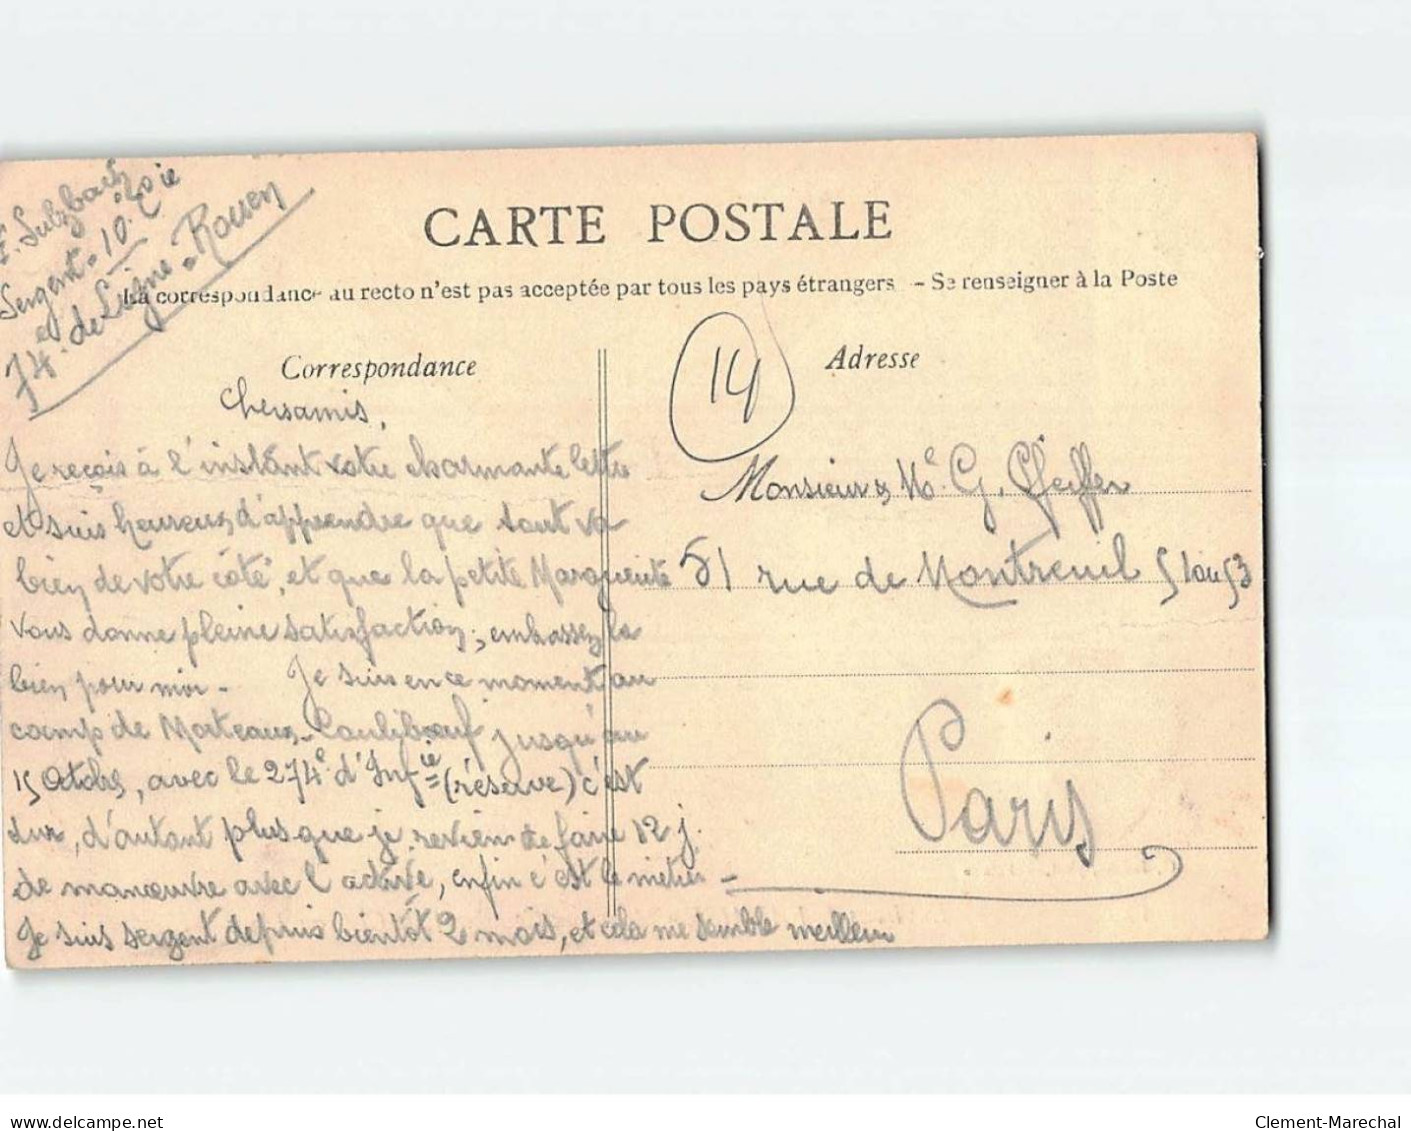 E. Sulzbach
Sergent - 10e Cie
74e de Ligne - Rouen
CARTE POSTALE
La correspondance au recto n'est pas acceptée par tous les pays étrangers - Se renseigner à la Poste
Correspondance
Adresse
14
Chers amis,
Je reçois à l'instant votre charmante lettre
et suis heureux d'apprendre que tout va
bien de votre côté, et que la petite Marguerite
vous donne pleine satisfaction; embrassez la
bien pour moi - Je suis en ce moment au
camp de Morteaux-Coulibœuf jusqu'au
15 Octobre, avec le 274e d'Infie (réserve) c'est
dur, d'autant plus que je reviens de faire 12 j.
de manœuvre avec l'active, enfin c'est le métier -
Je suis sergent depuis bientôt 2 mois, et cela me semble meilleur
Monsieur & Me G. Pfeiffer
51 rue de Montreuil 51 ou 53
Paris
www.delcampe.net
Clement-Marechal